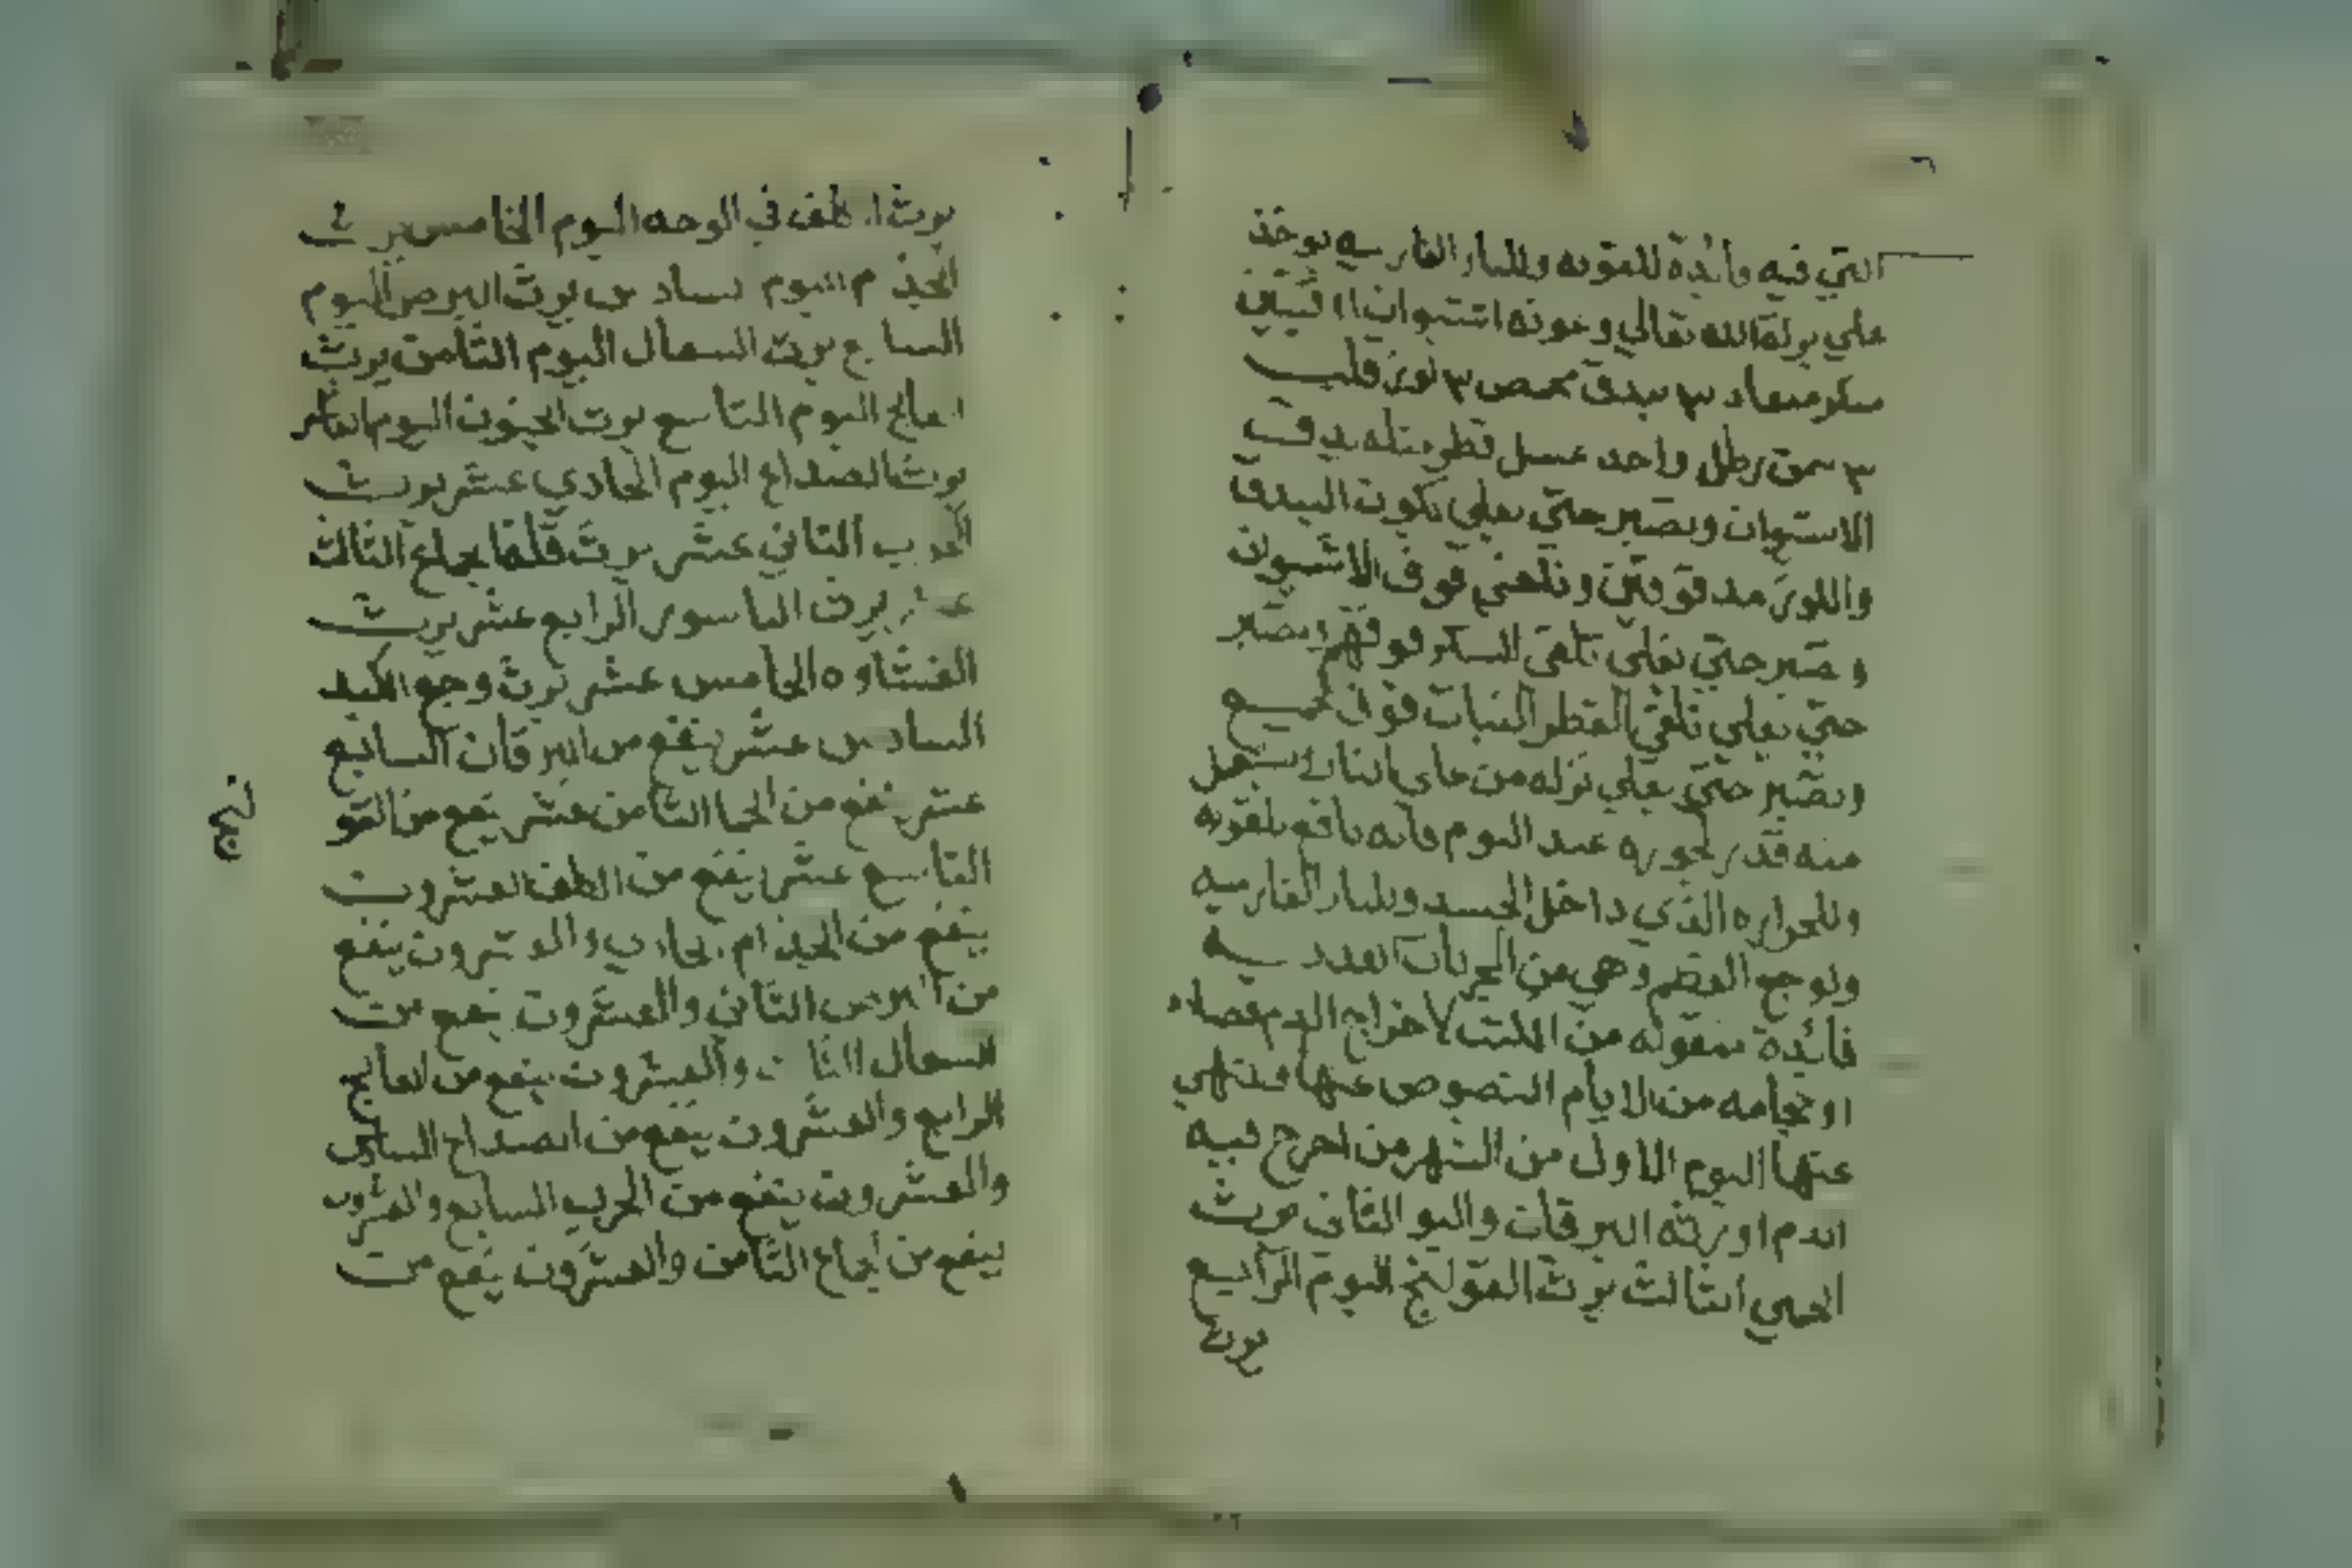 التي فيه فائدة للقوته وللنار الفارسيه يوخذ
علي بركة الله تعالي وعونه استهوان
سكر ٣ بندق محمص ٣ لوز قلب
٣ سمن رطل واحد عسل قطر مثله يدق
الاستهوان ويصير حتي يغلي يكون البندق
واللوز مدقوقين وتلقي فوق الاستهوان
وصبر حتي تغلي تلقي السكر فوقهم ويصبر
حتي يغلي تلقي القطر النبات فوق جميع
ويصبر حتي يغلي نزله من علي النار
منه قدر جوزه عند النوم فانه نافع للقوته
وللحراره الذي داخل الجسد وللنار الفارسيه
ولوجع العضم وهي من المجربات
فائدة منقوله من الكتب لاخراج الدم فصاده
او حجامه من الايام النصوص عنها منتهي
عنها اليوم الاول من الشهر من اخرج فيه
الدم اورثه اليرقان واليو الثاني يورث
الحمي الثالث يورث القولنج اليوم الرابع
يورث
يورث الطف في الوجه اليوم الخامس يورث
الجذام اليوم السادس يورث البرص اليوم
السابع يورث السعال اليوم الثامن يورث
الفالج اليوم التاسع يورث الجنون اليوم العاشر
يورث الصداع اليوم الحادي عشر يورث
الجرب الثاني عشر يورث قلة الجماع الثالث
عشر يورث الباسور الرابع عشر يورث
الغشاوه الخامس عشر يورث وجع الكبد
السادس عشر ينفع من اليرقان السابع
عشر ينفع من الحما الثامن عشر ينفع من القو
لنج
التاسع عشر ينفع من الطف العشرون
ينفع من الجذام الحادي والعشرون ينفع
من البرص الثاني والعشرون ينفع من
السعال الثالث والعشرون ينفع من الفالج
الرابع والعشرون ينفع من الصداع
والعشرون ينفع من الجرب السابع والعشرون
ينفع من الثامن والعشرون ينفع من